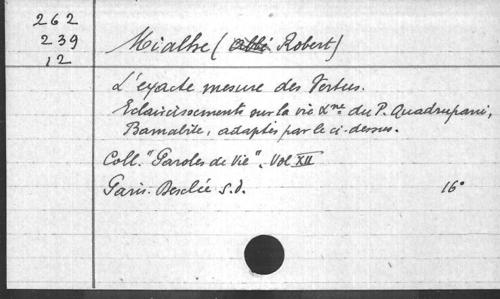 262
239
12
Mialhe (abbé Robert)
L'exacte mesure des Vertus.
Eclaircissements sur la vie xne. du P. Quadrupani,
Barnabite, adaptés par le ci-dessus.
Coll. "Paroles de Vie". Vol XII
Paris. Desclée s.d. 16°